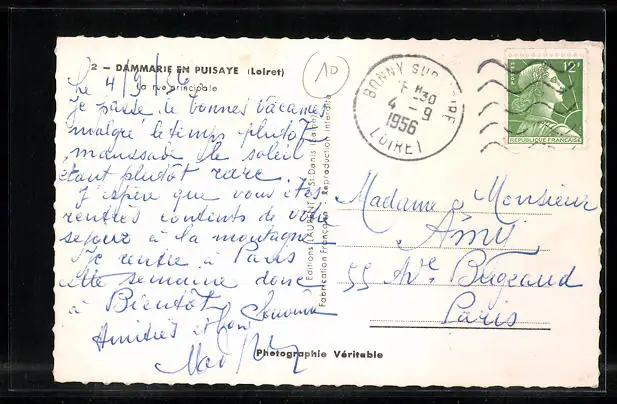 2 - DAMMARIE EN PUISAYE (Loiret)
La rue principale
Le 4/9/56
Je passe de bonnes vacances
malgré le temps plutôt
maussade le soleil
étant plutôt rare.
J'espère que vous êtes
rentrés contents de votre
séjour à la montagne
Je rentre à Paris
cette semaine donc
à Bientôt
Amitiés et bon
Photographie Véritable
Editions LAURENT St-Denis
Fabrication Française - Reproduction Interdite
10
BONNY SUR LOIRE
4 - 9
1956
LOIRET
POSTES
12F
REPUBLIQUE FRANÇAISE
Madame & Monsieur
Amy
55 Ave Bugeaud
Paris